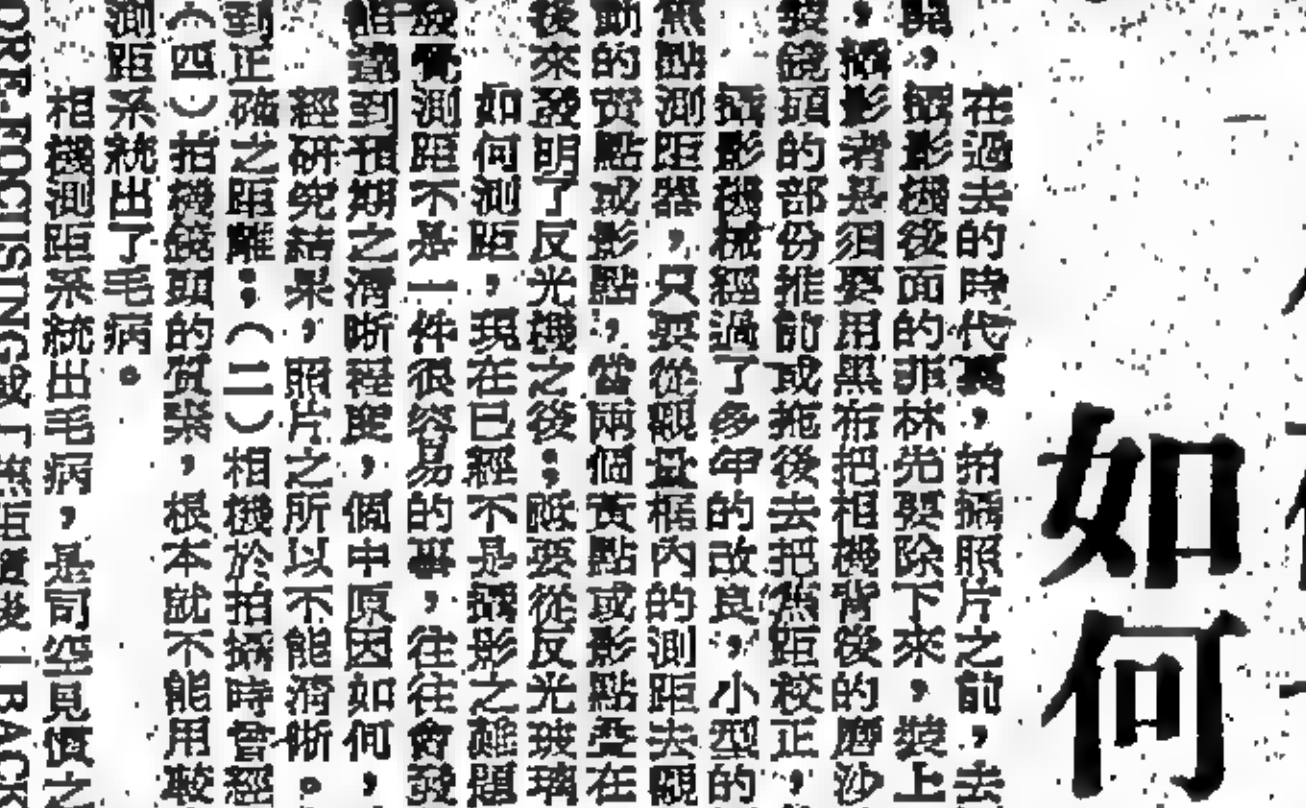 如何
在過去的時代裏，拍攝照片之前，去
，攝影機後面的菲林先要除下來，裝上
，攝影者是須要用黑布把相機背後的磨沙
鏡頭的部份推前或拖後去把焦距校正，
攝影機械經過了多年的改良，小型的
焦點測距器，只要從觀景框內的測距去觀
動的黃點或影點，當兩個黃點或影點叠在
後來發明了反光機之後；祗要從反光玻璃
如何測距，現在已經不是攝影之難題
發覺測距不是一件很容易的事，往往會發
能達到預期之清晰程度，個中原因如何，
經研究結果，照片之所以不能清晰。
到正確之距離；（二）相機於拍攝時曾經
（四）拍機鏡頭的質素，根本就不能用較
測距系統出了毛病。
相機測距系統出毛病，是司空見慣之
ORE-FOCUSING或「焦距
BACK